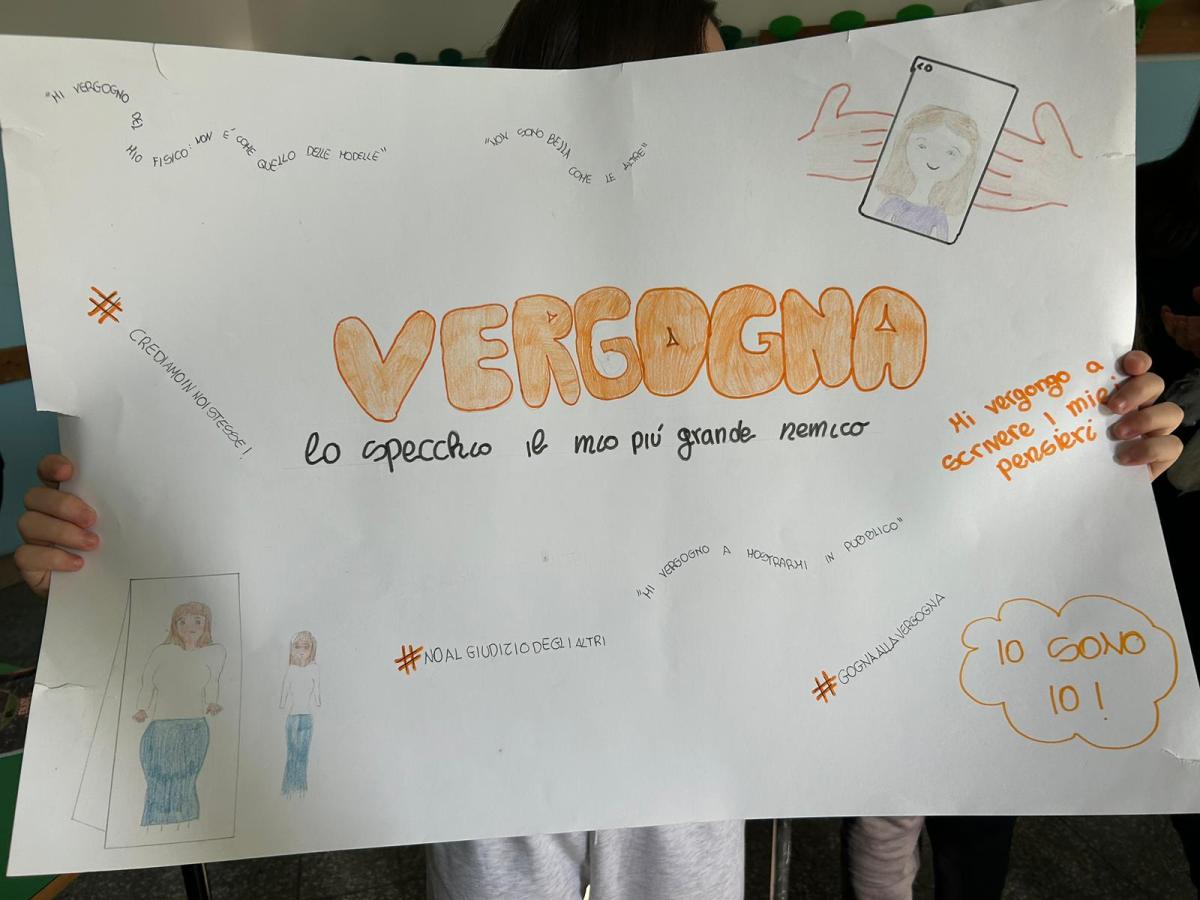 "MI VERGOGNO DEL MIO FISICO: NON É COME QUELLO DELLE MODELLE"
"NON SONO BELLA COME LE ALTRE"
# CREDIAMO IN NOI STESSE!
VERGOGNA
lo specchio il mio piú grande nemico
Mi vergongo a
scrivere I miei
pensieri
"MI VERGOGNO A MOSTRARMI IN PUBBLICO"
#NO AL GIUDIZIO DEGLI ALTRI
#GOGNA ALLA VERGOGNA
IO SONO
IO!